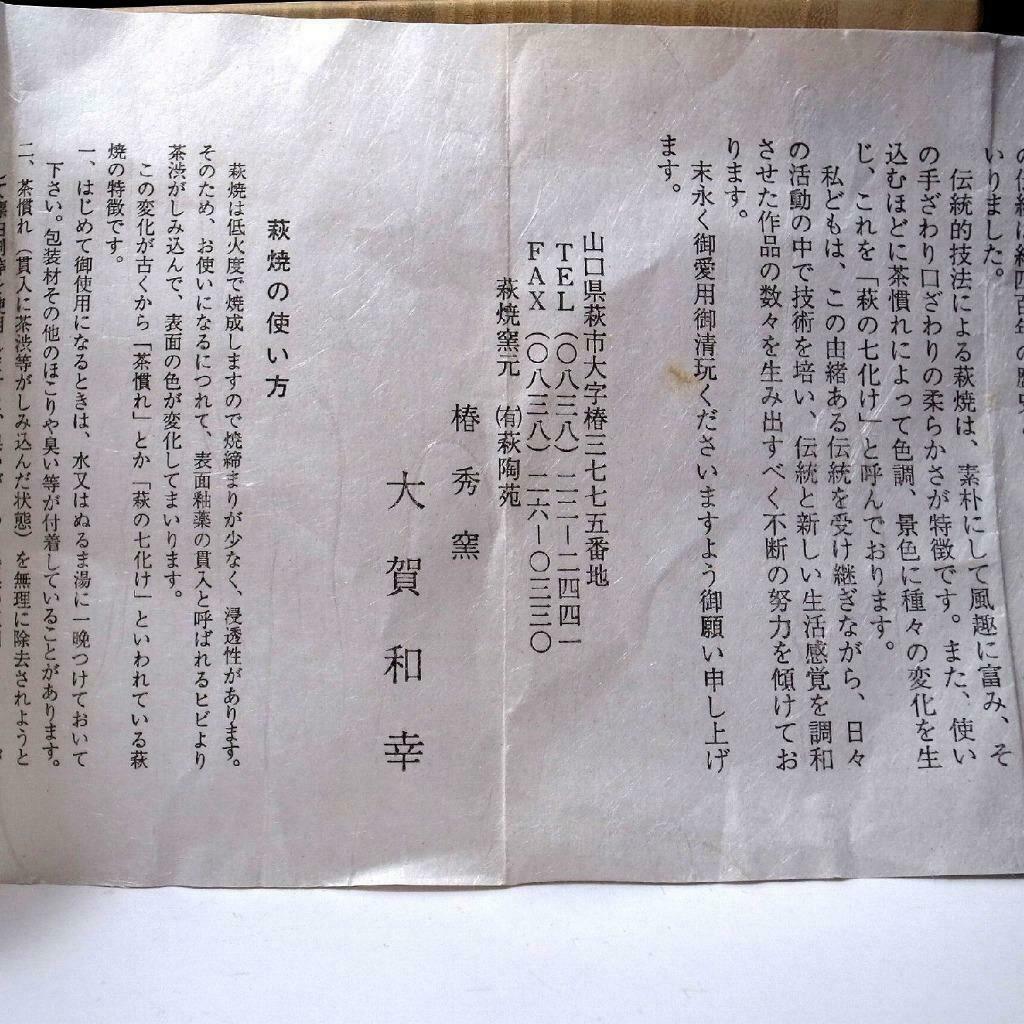 の伝統は約四百年の歴史
いりました。
伝統的技法による萩焼は、素朴にして風趣に富み、そ
の手ざわり口ざわりの柔らかさが特徴です。また、使い
込むほどに茶慣れによって色調、景色に種々の変化を生
じ、これを「萩の七化け」と呼んでおります。
私どもは、この由緒ある伝統を受け継ぎながら、日々
の活動の中で技術を培い、伝統と新しい生活感覚を調和
させた作品の数々を生み出すべく不断の努力を傾けてお
ります。
末永く御愛用御清玩くださいますよう御願い申し上げ
ます。
山口県萩市大字椿三七七五番地
TEL(〇八三八)二二―二四四一
FAX(〇八三八)二六―〇三三〇
萩焼窯元 ㈲萩陶苑
椿秀窯
大賀和幸
萩焼の使い方
萩焼は低火度で焼成しますので焼締まりが少なく、浸透性があります。
そのため、お使いになるにつれて、表面釉薬の貫入と呼ばれるヒビより
茶渋がしみ込んで、表面の色が変化してまいります。
この変化が古くから「茶慣れ」とか「萩の七化け」といわれている萩
焼の特徴です。
一、はじめて御使用になるときは、水又はぬるま湯に一晩つけておいて
下さい。包装材その他のほこりや臭い等が付着していることがあります。
二、茶慣れ(貫入に茶渋等がしみ込んだ状態)を無理に除去されようと